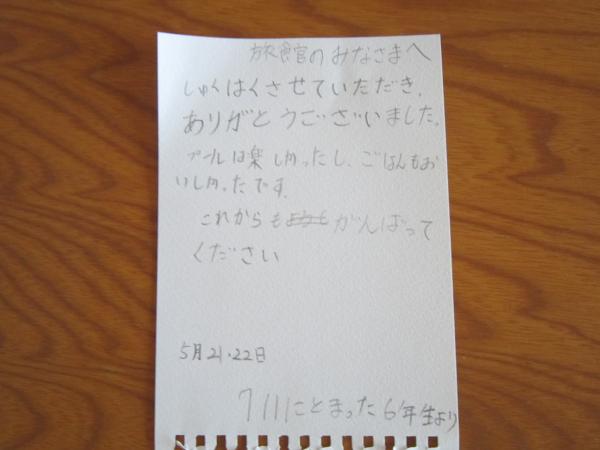 旅館のみなさまへ
しゅくはくさせていただき、
ありがとうございました。
プールは楽しかったし、ごはんもお
いしかったです。
これからもがんばって
ください
5月21・22日
711にとまった6年生より